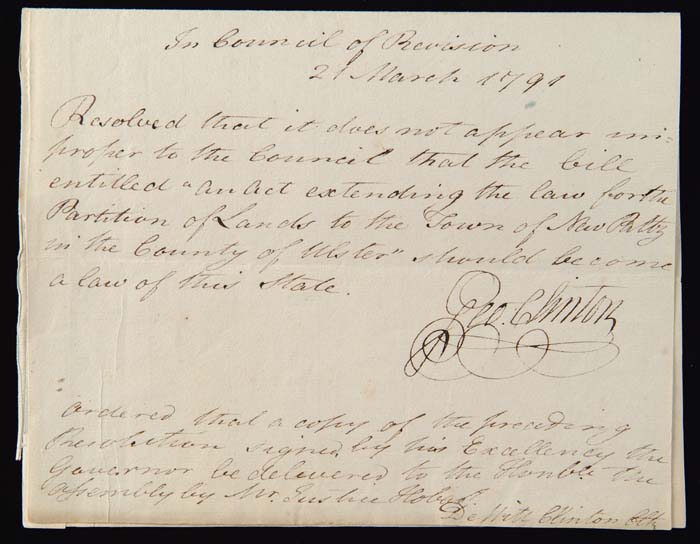 In Council of Revision
21 March 1791
Resolved that it does not appear im=
proper to the Council that the bill
entitled "An Act extending the law for the
Partition of Lands to the Town of New Paltz
in the County of Ulster" should become
a law of this State.
Geo. Clinton
Ordered that a copy of the preceding
Resolution signed by his Excellency the
Governor be delivered to the Honble. the
Assembly by Mr. Justice Hobart
De Witt Clinton